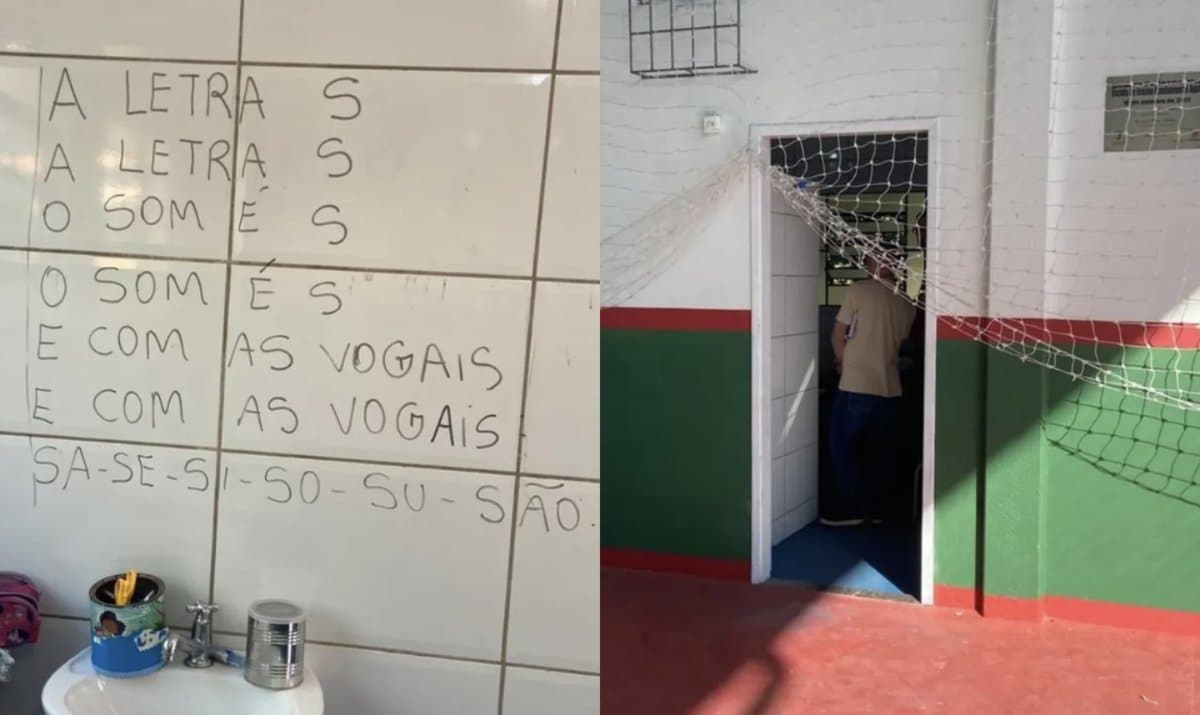 A LETRA S
A LETRA S
O SOM É S
O SOM É S
E COM AS VOGAIS
E COM AS VOGAIS
SA-SE-SI-SO-SU-SÃO.